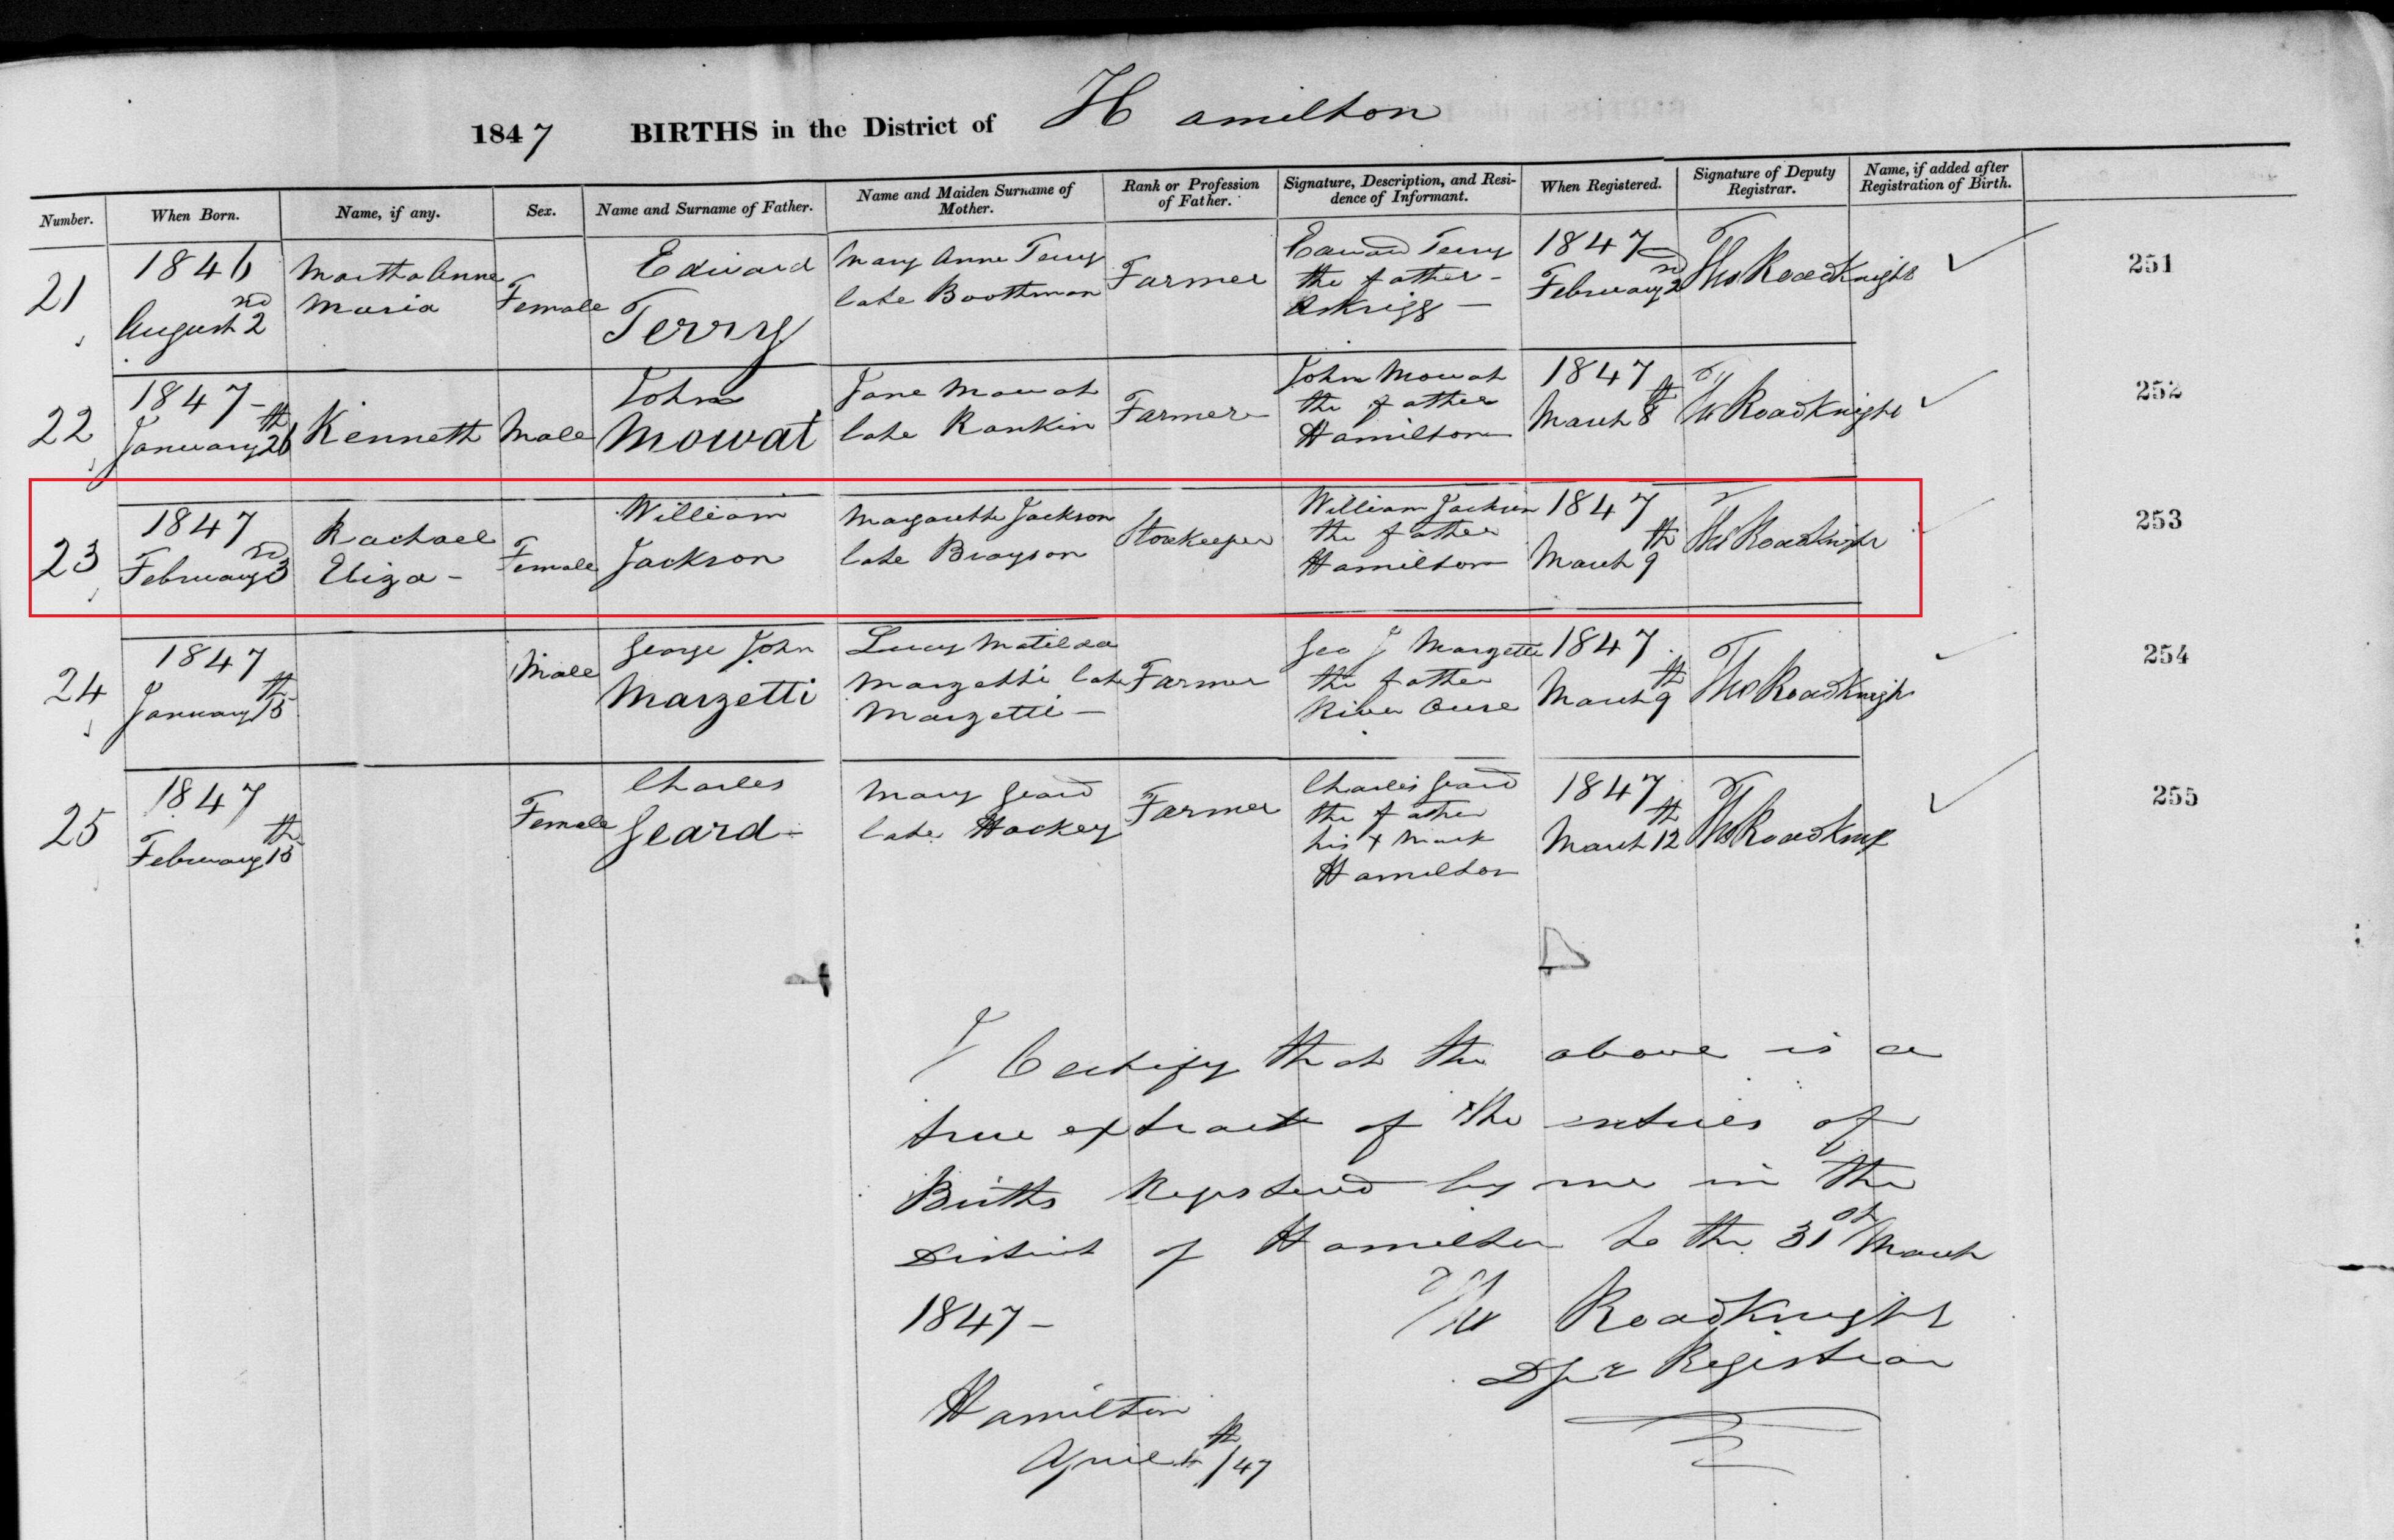 1847 BIRTHS in the District of Hamilton
Number. When Born. Name, if any. Sex. Name and Surname of Father. Name and Maiden Surname of Mother. Rank or Profession of Father. Signature, Description, and Residence of Informant. When Registered. Signature of Deputy Registrar. Name, if added after Registration of Birth.
21
1846
August 2nd
Martha Anne
Maria
Female
Edward
Terry
Mary Anne Terry
late Boothman
Farmer
Edward Terry
the father -
Askrigg -
1847
February 2nd
Thos Roadknight
251
22
1847 -
January 26th
Kenneth
Male
John
Mowat
Jane Mowat
late Rankin
Farmer
John Mowat
the father
Hamilton
1847
March 8th
Thos Roadknight
252
23
1847
February 3rd
Rachael
Eliza -
Female
William
Jackson
Margarette Jackson
late Brayson
Storekeeper
William Jackson
the father
Hamilton
1847
March 9th
Thos Roadknight
253
24
1847
January 15th
Male
George John
Marzetti
Lucy Matilda
Marzetti late
Marzetti -
Farmer
Geo J Marzetti
the father
River Ouse
1847
March 9th
Thos Roadknight
254
25
1847
February 15th
Female
Charles
Geard -
Mary Geard
late Hockey
Farmer
Charles Geard
the father
his x mark
Hamilton
1847
March 12th
Thos Roadknight
255
I Certify that the above is a
true extract of the entries of
Births Registered by me in the
District of Hamilton to the 31st March
1847 -
Thos Roadknight
Dpr Registrar
Hamilton
April 4th/47